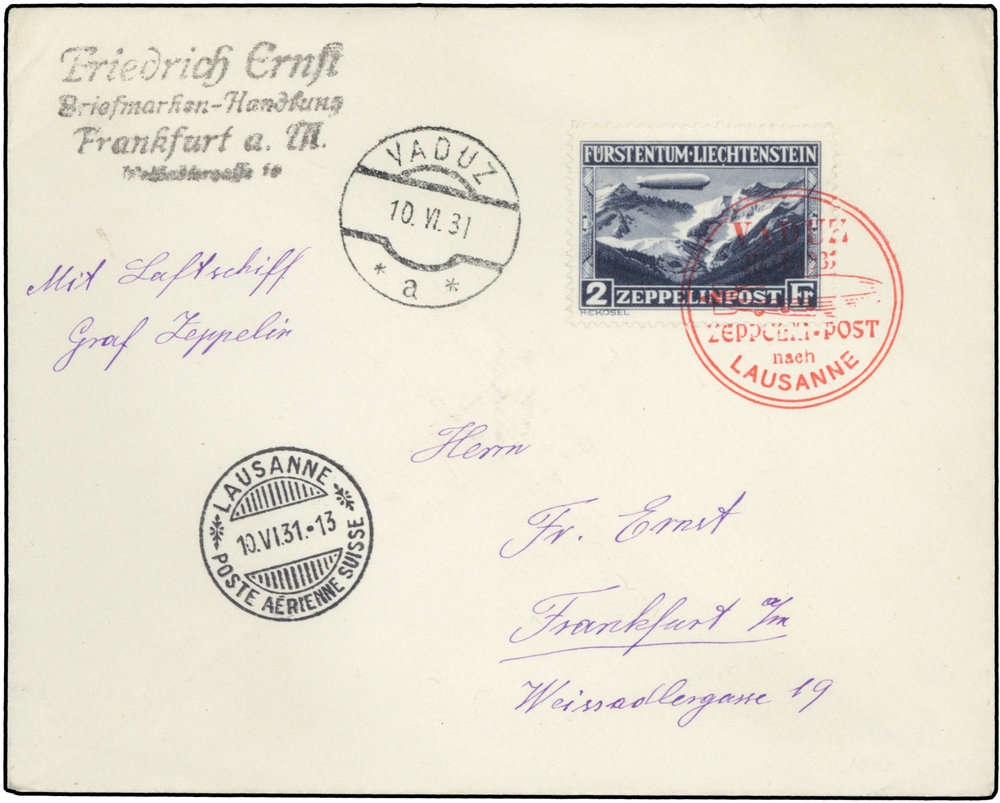 Friedrich Ernst
Briefmarken-Handlung
Frankfurt a. M.
VADUZ
10.VI.31
* a *
FÜRSTENTUM·LIECHTENSTEIN
2 ZEPPELINPOST Fr
H.E.KOSEL
VADUZ
31
ZEPPELIN-POST
nach
LAUSANNE
Mit Luftschiff
Graf Zeppelin
LAUSANNE
10.VI.31.-13
POSTE AÉRIENNE SUISSE
Herrn
Fr. Ernst
Frankfurt a/m
Weissadlergasse 19